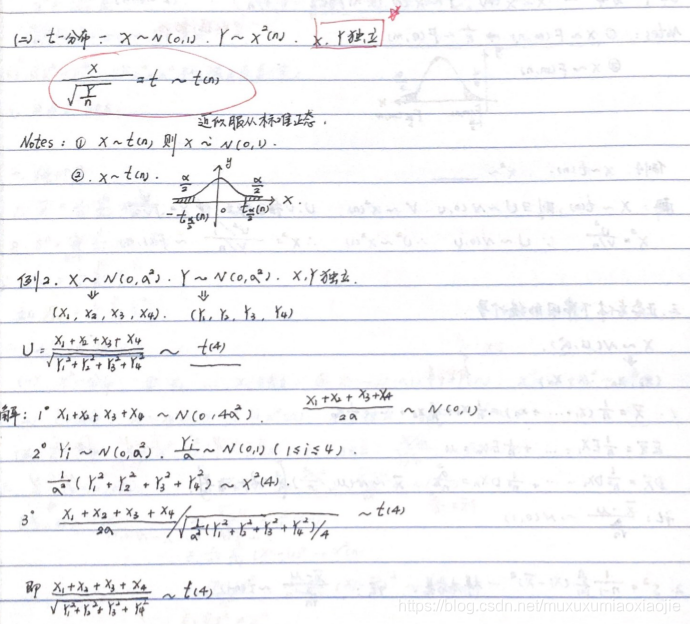 (二). t-分布: X~N(0,1). Y~χ²(n). X, Y独立
X/√(Y/n) = t ~ t(n)
近似服从标准正态.
Notes: ① X~t(n) 则 X ~ N(0,1).
②. X~t(n). α/2 y α/2
-t_{α/2}(n) 0 t_{α/2}(n) X.
例2. X~N(0,a²). Y~N(0,a²). X,Y独立.
⇓ ⇓
(X₁, X₂, X₃, X₄). (Y₁, Y₂, Y₃, Y₄)
U = (X₁+X₂+X₃+X₄)/√(Y₁²+Y₂²+Y₃²+Y₄²) ~ t(4)
解: 1° X₁+X₂+X₃+X₄ ~ N(0,4a²). (X₁+X₂+X₃+X₄)/2a ~ N(0,1).
2° Yi ~ N(0,a²). Yi/a ~ N(0,1) (1≤i≤4).
1/a² (Y₁²+Y₂²+Y₃²+Y₄²) ~ χ²(4).
3° (X₁+X₂+X₃+X₄)/2a / √(1/a²(Y₁²+Y₂²+Y₃²+Y₄²)/4) ~ t(4)
即 (X₁+X₂+X₃+X₄)/√(Y₁²+Y₂²+Y₃²+Y₄²) ~ t(4)
https://blog.csdn.net/muxuxumiaoxiaojie